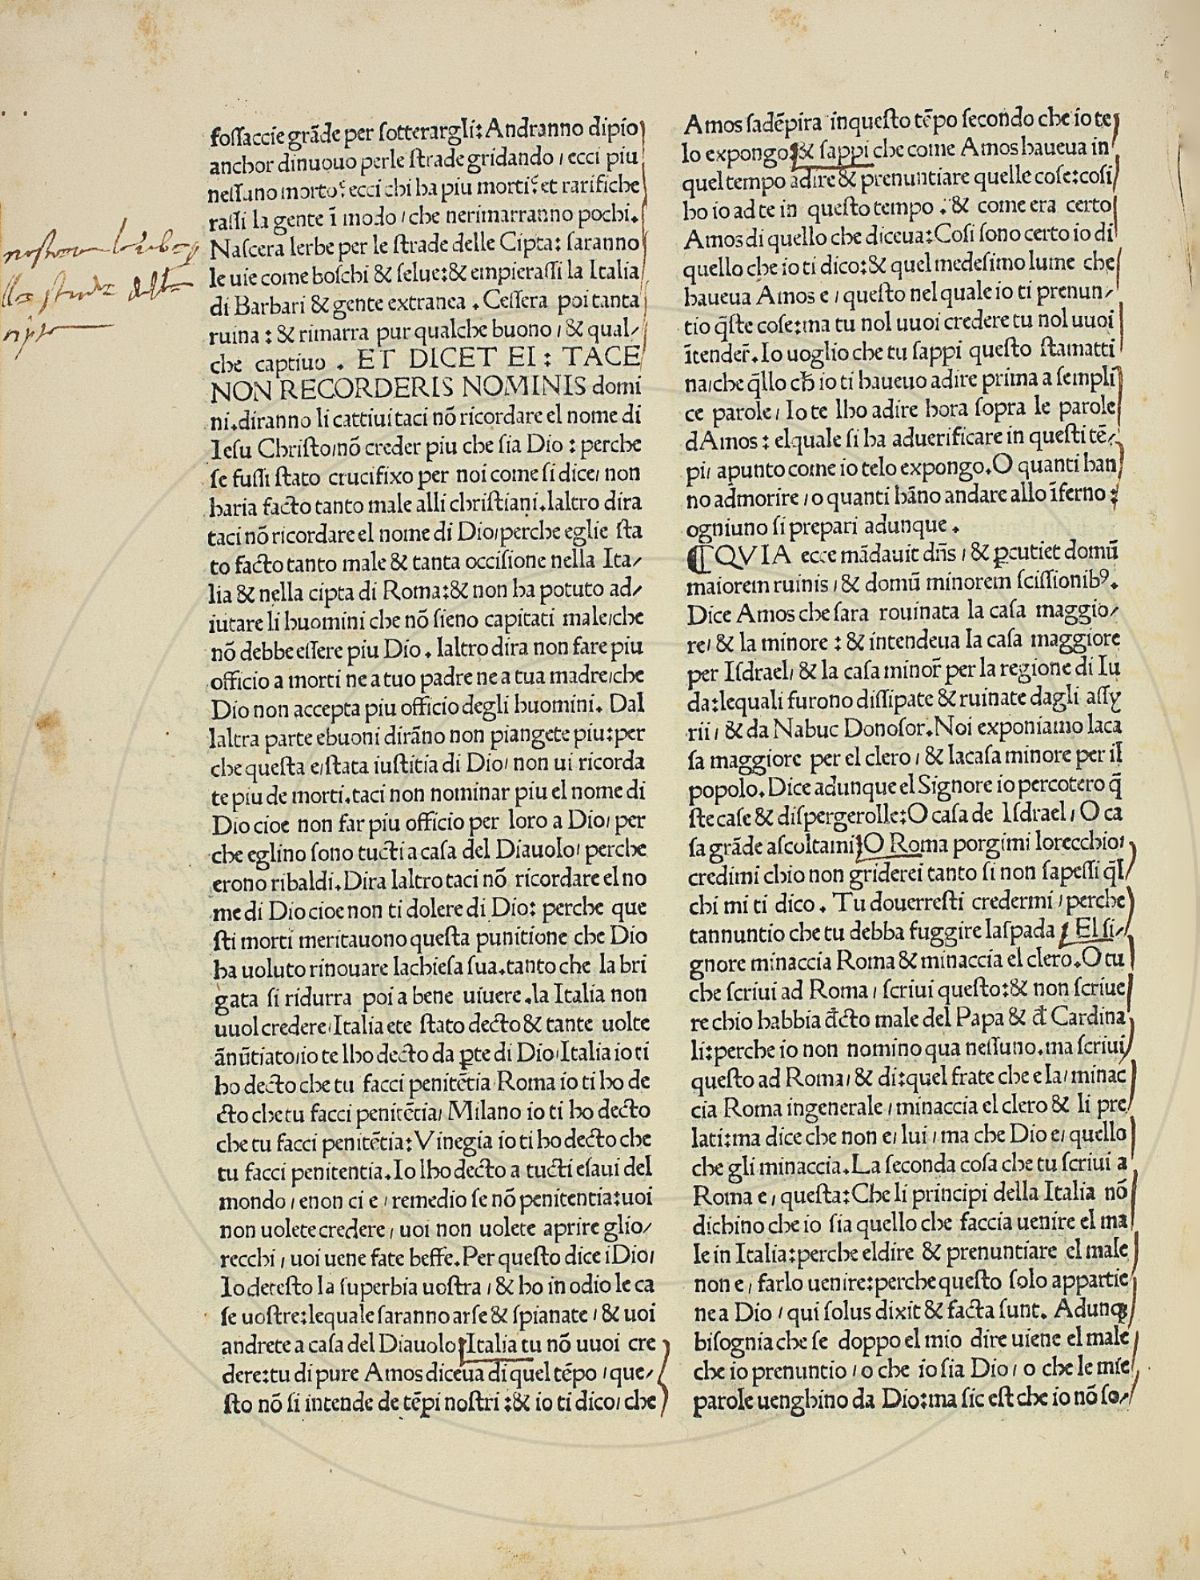 foſſaccie grãde per ſotterargli: Andranno dipio
anchor dinuouo perle ſtrade gridando / ecci piu
neſſuno morto? ecci chi ha piu morti? et rarifiche
raſſi la gente ĩ modo / che nerimarranno pochi.
Naſcera lerbe per le ſtrade delle Cipta: ſaranno
le uie come boſchi & ſelue: & empieraſſi la Italia
di Barbari & gente extranea . Ceſſera poi tanta
ruina : & rimarra pur qualche buono / & qual/
che captiuo . ET DICET EI : TACE
NON RECORDERIS NOMINIS domi
ni. diranno li cattiui taci nõ ricordare el nome di
Ieſu Chriſto/nõ creder piu che ſia Dio : perche
ſe fuſſi ſtato crucifixo per noi come ſi dice/ non
haria facto tanto male alli chriſtiani. laltro dira
taci nõ ricordare el nome di Dio/perche eglie ſta
to facto tanto male & tanta occiſione nella Ita/
lia & nella cipta di Roma: & non ha potuto ad/
iutare li huomini che nõ ſieno capitati male/che
nõ debbe eſſere piu Dio . laltro dira non fare piu
officio a morti ne a tuo padre ne a tua madre/che
Dio non accepta piu officio degli huomini. Dal
laltra parte ebuoni dirãno non piangete piu: per
che queſta e/ſtata iuſtitia di Dio/ non ui ricorda
te piu de morti. taci non nominar piu el nome di
Dio cioe non far piu officio per loro a Dio/ per
che eglino ſono tucti a caſa del Diauolo/ perche
erono ribaldi. Dira laltro taci nõ ricordare el no
me di Dio cioe non ti dolere di Dio: perche que
ſti morti meritauono queſta punitione che Dio
ha uoluto rinouare lachieſa ſua. tanto che la bri
gata ſi ridurra poi a bene uiuere . la Italia non
uuol credere/ Italia ete ſtato decto & tante uolte
ãnũtiato/io te lho decto da ꝑte di Dio/ Italia io ti
ho decto che tu facci penitẽtia/ Roma io ti ho de
cto che tu facci penitẽtia/ Milano io ti ho decto
che tu facci penitẽtia: Vinegia io ti ho decto che
tu facci penitentia. Io lho decto a tucti eſaui del
mondo / enon ci e / remedio ſe nõ penitentia: uoi
non uolete credere / uoi non uolete aprire glio/
recchi / uoi uene fate beffe. Per queſto dice iDio/
Io deteſto la ſuperbia uoſtra / & ho in odio le ca
ſe uoſtre: lequale ſaranno arſe & ſpianate / & uoi
andrete a caſa del Diauolo/ Italia tu nõ uuoi cre
dere: tu di pure Amos diceua di quel tẽpo / que/
ſto nõ ſi intende de tẽpi noſtri : & io ti dico/ che
Amos ſadẽpira inqueſto tẽpo ſecondo che io te
lo expongo: & ſappi che come Amos haueua in
quel tempo adire & prenuntiare quelle coſe: coſi
ho io ad te in queſto tempo . & come era certo
Amos di quello che diceua: Coſi ſono certo io di
quello che io ti dico: & quel medeſimo lume che
haueua Amos e / queſto nel quale io ti prenun/
tio q̃ſte coſe: ma tu nol uuoi credere tu nol uuoi
ĩtender̃. Io uoglio che tu ſappi queſto ſtamatti
na/che q̃llo cħ io ti haueuo adire prima a ſempli
ce parole / Io te lho adire hora ſopra le parole
dAmos : elquale ſi ha aduerificare in queſti tẽ/
pi/ apunto come io telo expongo. O quanti han
no admorire / o quanti hãno andare allo ĩferno :
ogniuno ſi prepari adunque .
¶ QVIA ecce mãdauit dñs / & ꝑcutiet domũ
maiorem ruinis / & domũ minorem ſciſſionibꝰ.
Dice Amos che ſara rouinata la caſa maggio/
re/ & la minore : & intendeua la caſa maggiore
per Iſdrael/ & la caſa minor̃ per la regione di Iu
da: lequali furono diſſipate & ruinate dagli aſſy
rii / & da Nabuc Donoſor. Noi exponiamo laca
ſa maggiore per el clero / & lacaſa minore per il
popolo. Dice adunque el Signore io percotero q̃
ſte caſe & diſpergerolle: O caſa de Iſdrael / O ca
ſa grãde aſcoltami: O Roma porgimi lorecchio/
credimi chio non griderei tanto ſi non ſapeſſi q̃l
chi mi ti dico . Tu douerreſti credermi / perche
tannuntio che tu debba fuggire laſpada / El ſi/
gnore minaccia Roma & minaccia el clero. O tu
che ſcriui ad Roma / ſcriui queſto: & non ſcriue
re chio habbia đcto male del Papa & đ Cardina
li: perche io non nomino qua neſſuno. ma ſcriui
queſto ad Roma/ & di: quel frate che e la/ minac
cia Roma ingenerale / minaccia el clero & li pre
lati: ma dice che non e / lui / ma che Dio e/ quello
che gli minaccia. La ſeconda coſa che tu ſcriui a
Roma e / queſta: Che li principi della Italia nõ
dichino che io ſia quello che faccia uenire el ma
le in Italia: perche eldire & prenuntiare el male
non e / farlo uenire: perche queſto ſolo appartie
ne a Dio / qui ſolus dixit & facta ſunt. Adunq̃
biſognia che ſe doppo el mio dire uiene el male
che io prenuntio / o che io ſia Dio / o che le mie
parole uenghino da Dio: ma ſic eſt che io nõ ſo/